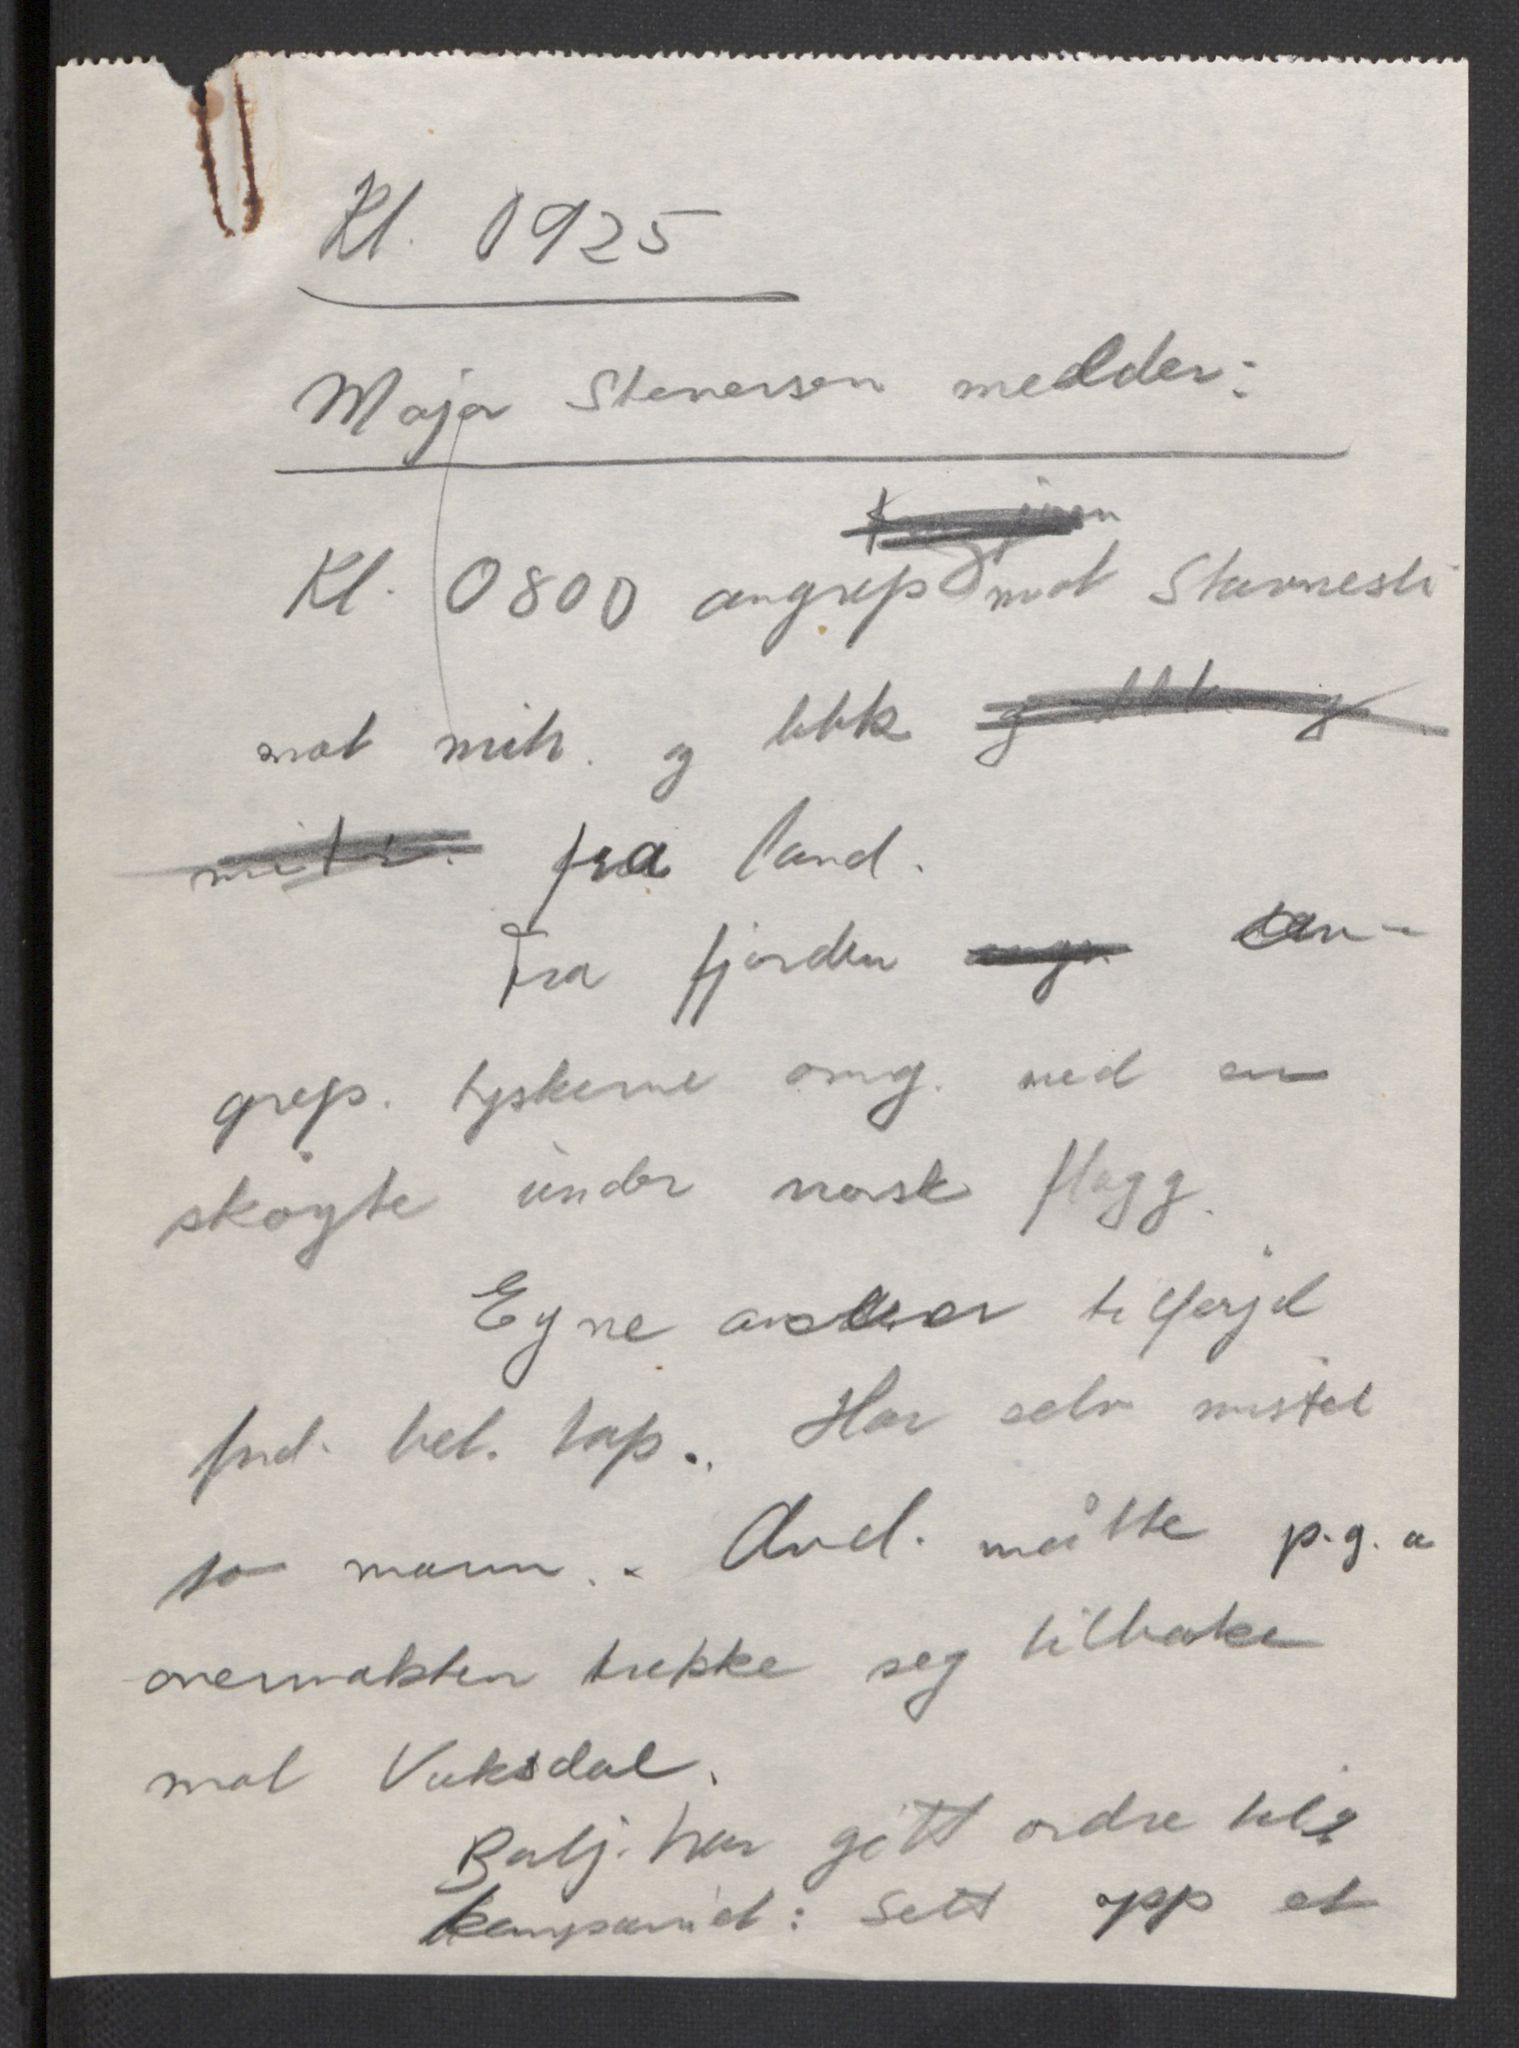 Kl. 0925
Major Stenersen melder:
Kl. 0800 angrep mot Stavnesli
mot mitr. og bbk
mitr. fra land.
Fra fjorden angr. an-
grep. tyskerne omg. med en
skøyte under norsk flagg.
Egne avd. tilføjd
fnd. bet. tap.. Har selv mistet
to mann. - Avd. måtte p.g.a
overmakten trekke seg tilbake
mot Vaksdal.
Batj. har gitt ordre til
kompaniet: Sett opp et